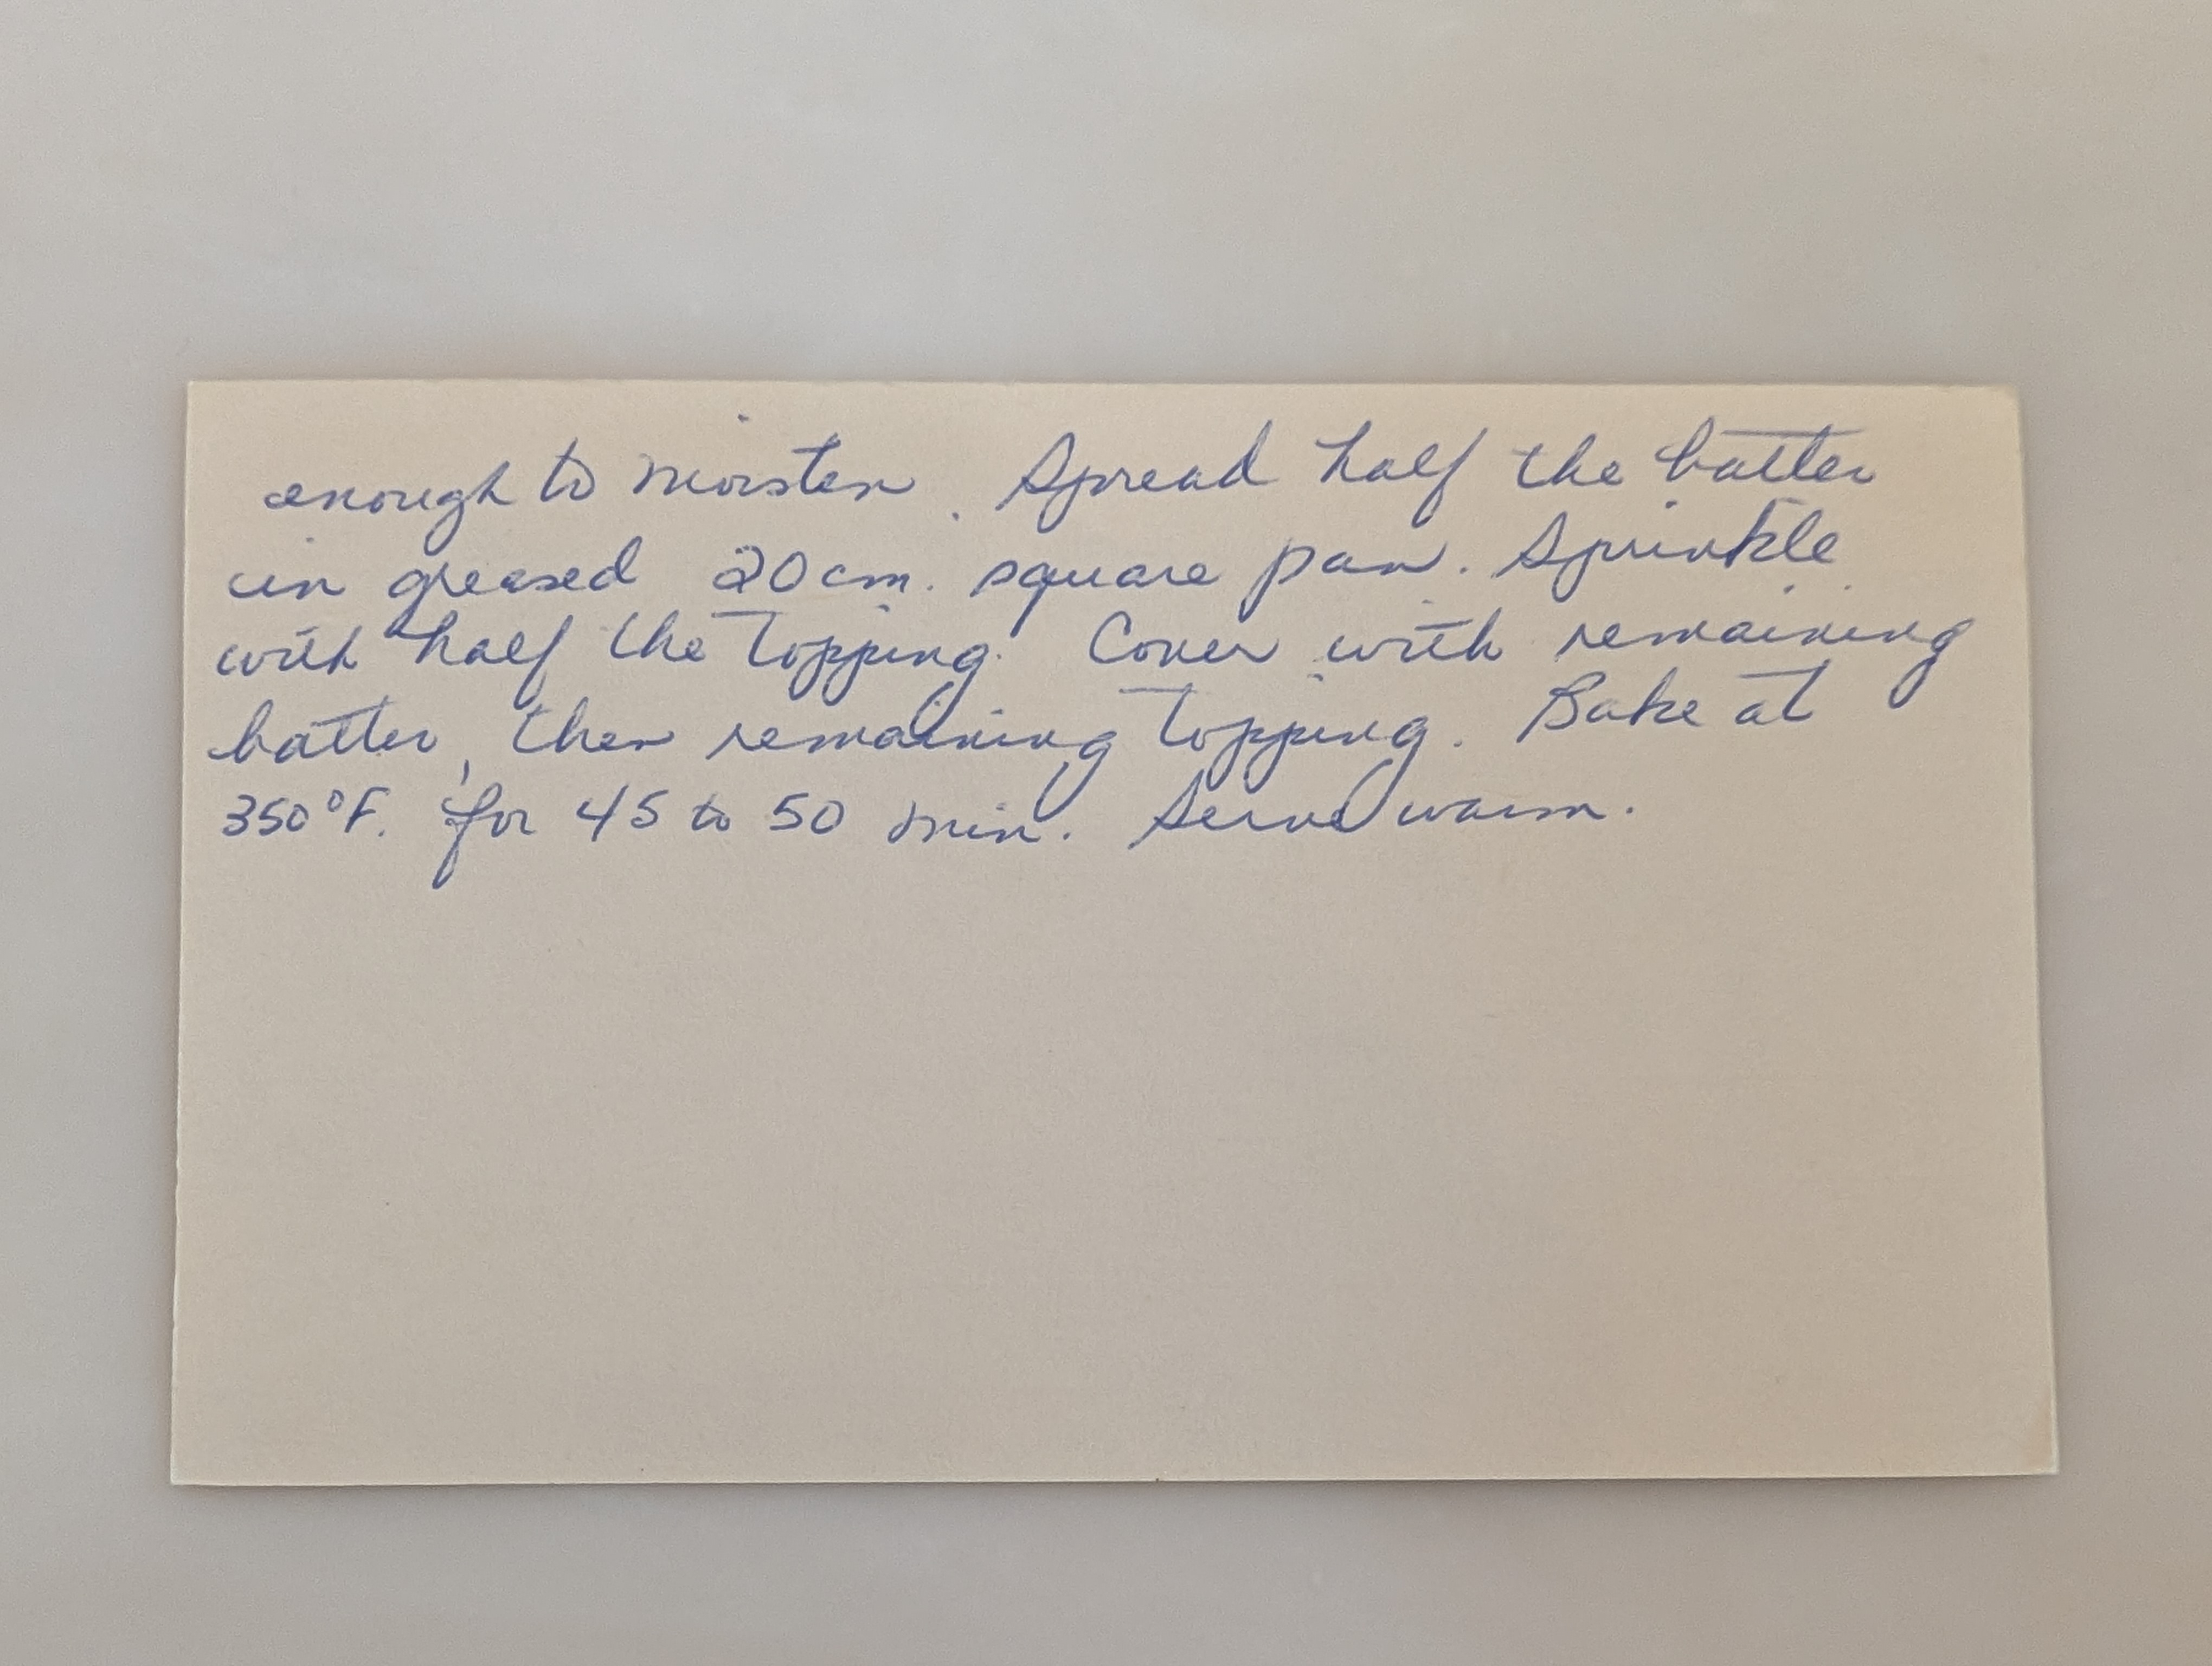 enough to moisten. Spread half the batter
in greased 20 cm. square pan. Sprinkle
with half the topping. Cover with remaining
batter, then remaining topping. Bake at
350°F. for 45 to 50 min. Serve warm.